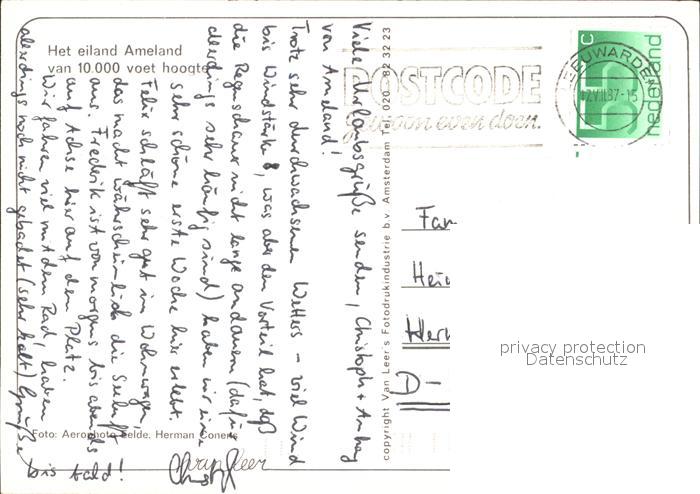 Het eiland Ameland
van 10.000 voet hoogte
Viele Urlaubsgrüße senden, Christoph + Anhang
von Ameland!
Trotz sehr durchwachsenen Wetters - viel Wind
bis Windstärke 8, was aber den Vorteil hat, daß
die Regenschauer nicht lange andauern (dafür
allerdings sehr häufig sind) haben wir eine
sehr schöne erste Woche hier erlebt.
Felix schläft sehr gut im Wohnwagen,
das macht wahrscheinlich die Seeluft
aus. Frederik ist von morgens bis abends
auf Achse hier auf dem Platz.
Wir fahren viel mit dem Rad, haben
allerdings noch nicht gebadet (sehr kalt) Grüße
bis bald!
Foto: Aerophoto Eelde, Herman Conens
van leer
copyright Van Leer's Fotodrukindustrie b.v. Amsterdam Tel. 020 - 82 32 23
POSTCODE
gewoon even doen.
LEEUWARDEN
nederland
c
Fam
Hei
Her
D -
privacy protection
Datenschutz